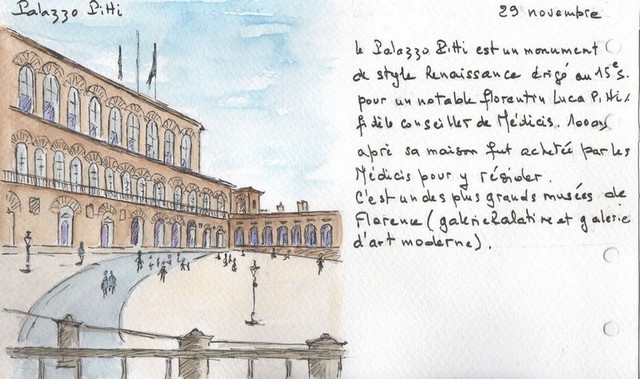 Palazzo Pitti
29 novembre
le Palazzo Pitti est un monument
de style Renaissance érigé au 15e s.
pour un notable florentin Luca Pitti,
fidèle conseiller de Médicis. 100 ans
après sa maison fut achetée par les
Médicis pour y résider.
C'est un des plus grands musées de
Florence (galerie Palatine et galerie
d'art moderne).